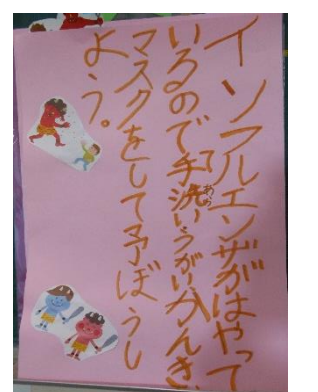 インフルエンザがはやって
いるので手洗いうがいかんき
マスクをして予ぼうし
よう。